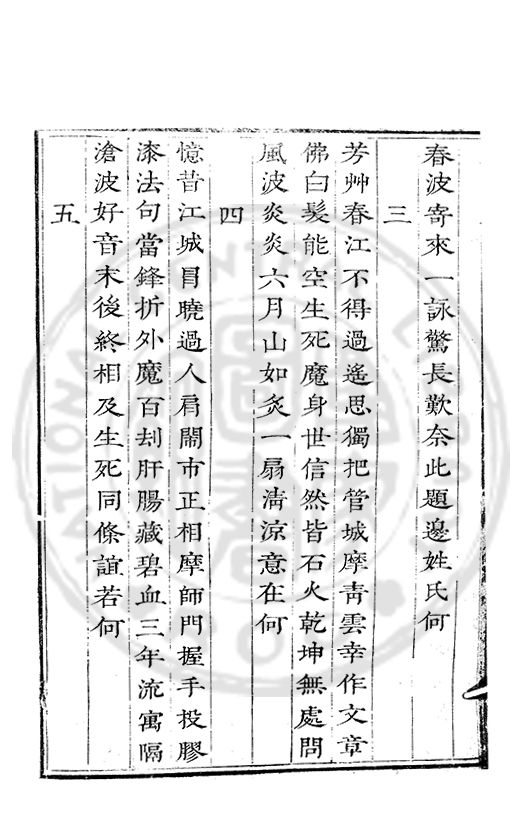 春波寄來一詠驚長歎奈此題邊姓氏何
三
芳艸春江不得過遙思獨把管城摩靑雲幸作文章
佛白髮能空生死魔身世信然皆石火乾坤無處問
風波炎炎六月山如炙一扇淸涼意在何
四
憶昔江城冐曉過人肩鬧市正相摩師門握手投膠
漆法句當鋒折外魔百刦肝腸藏碧血三年流寓隔
滄波好音末後終相及生死同條誼若何
五